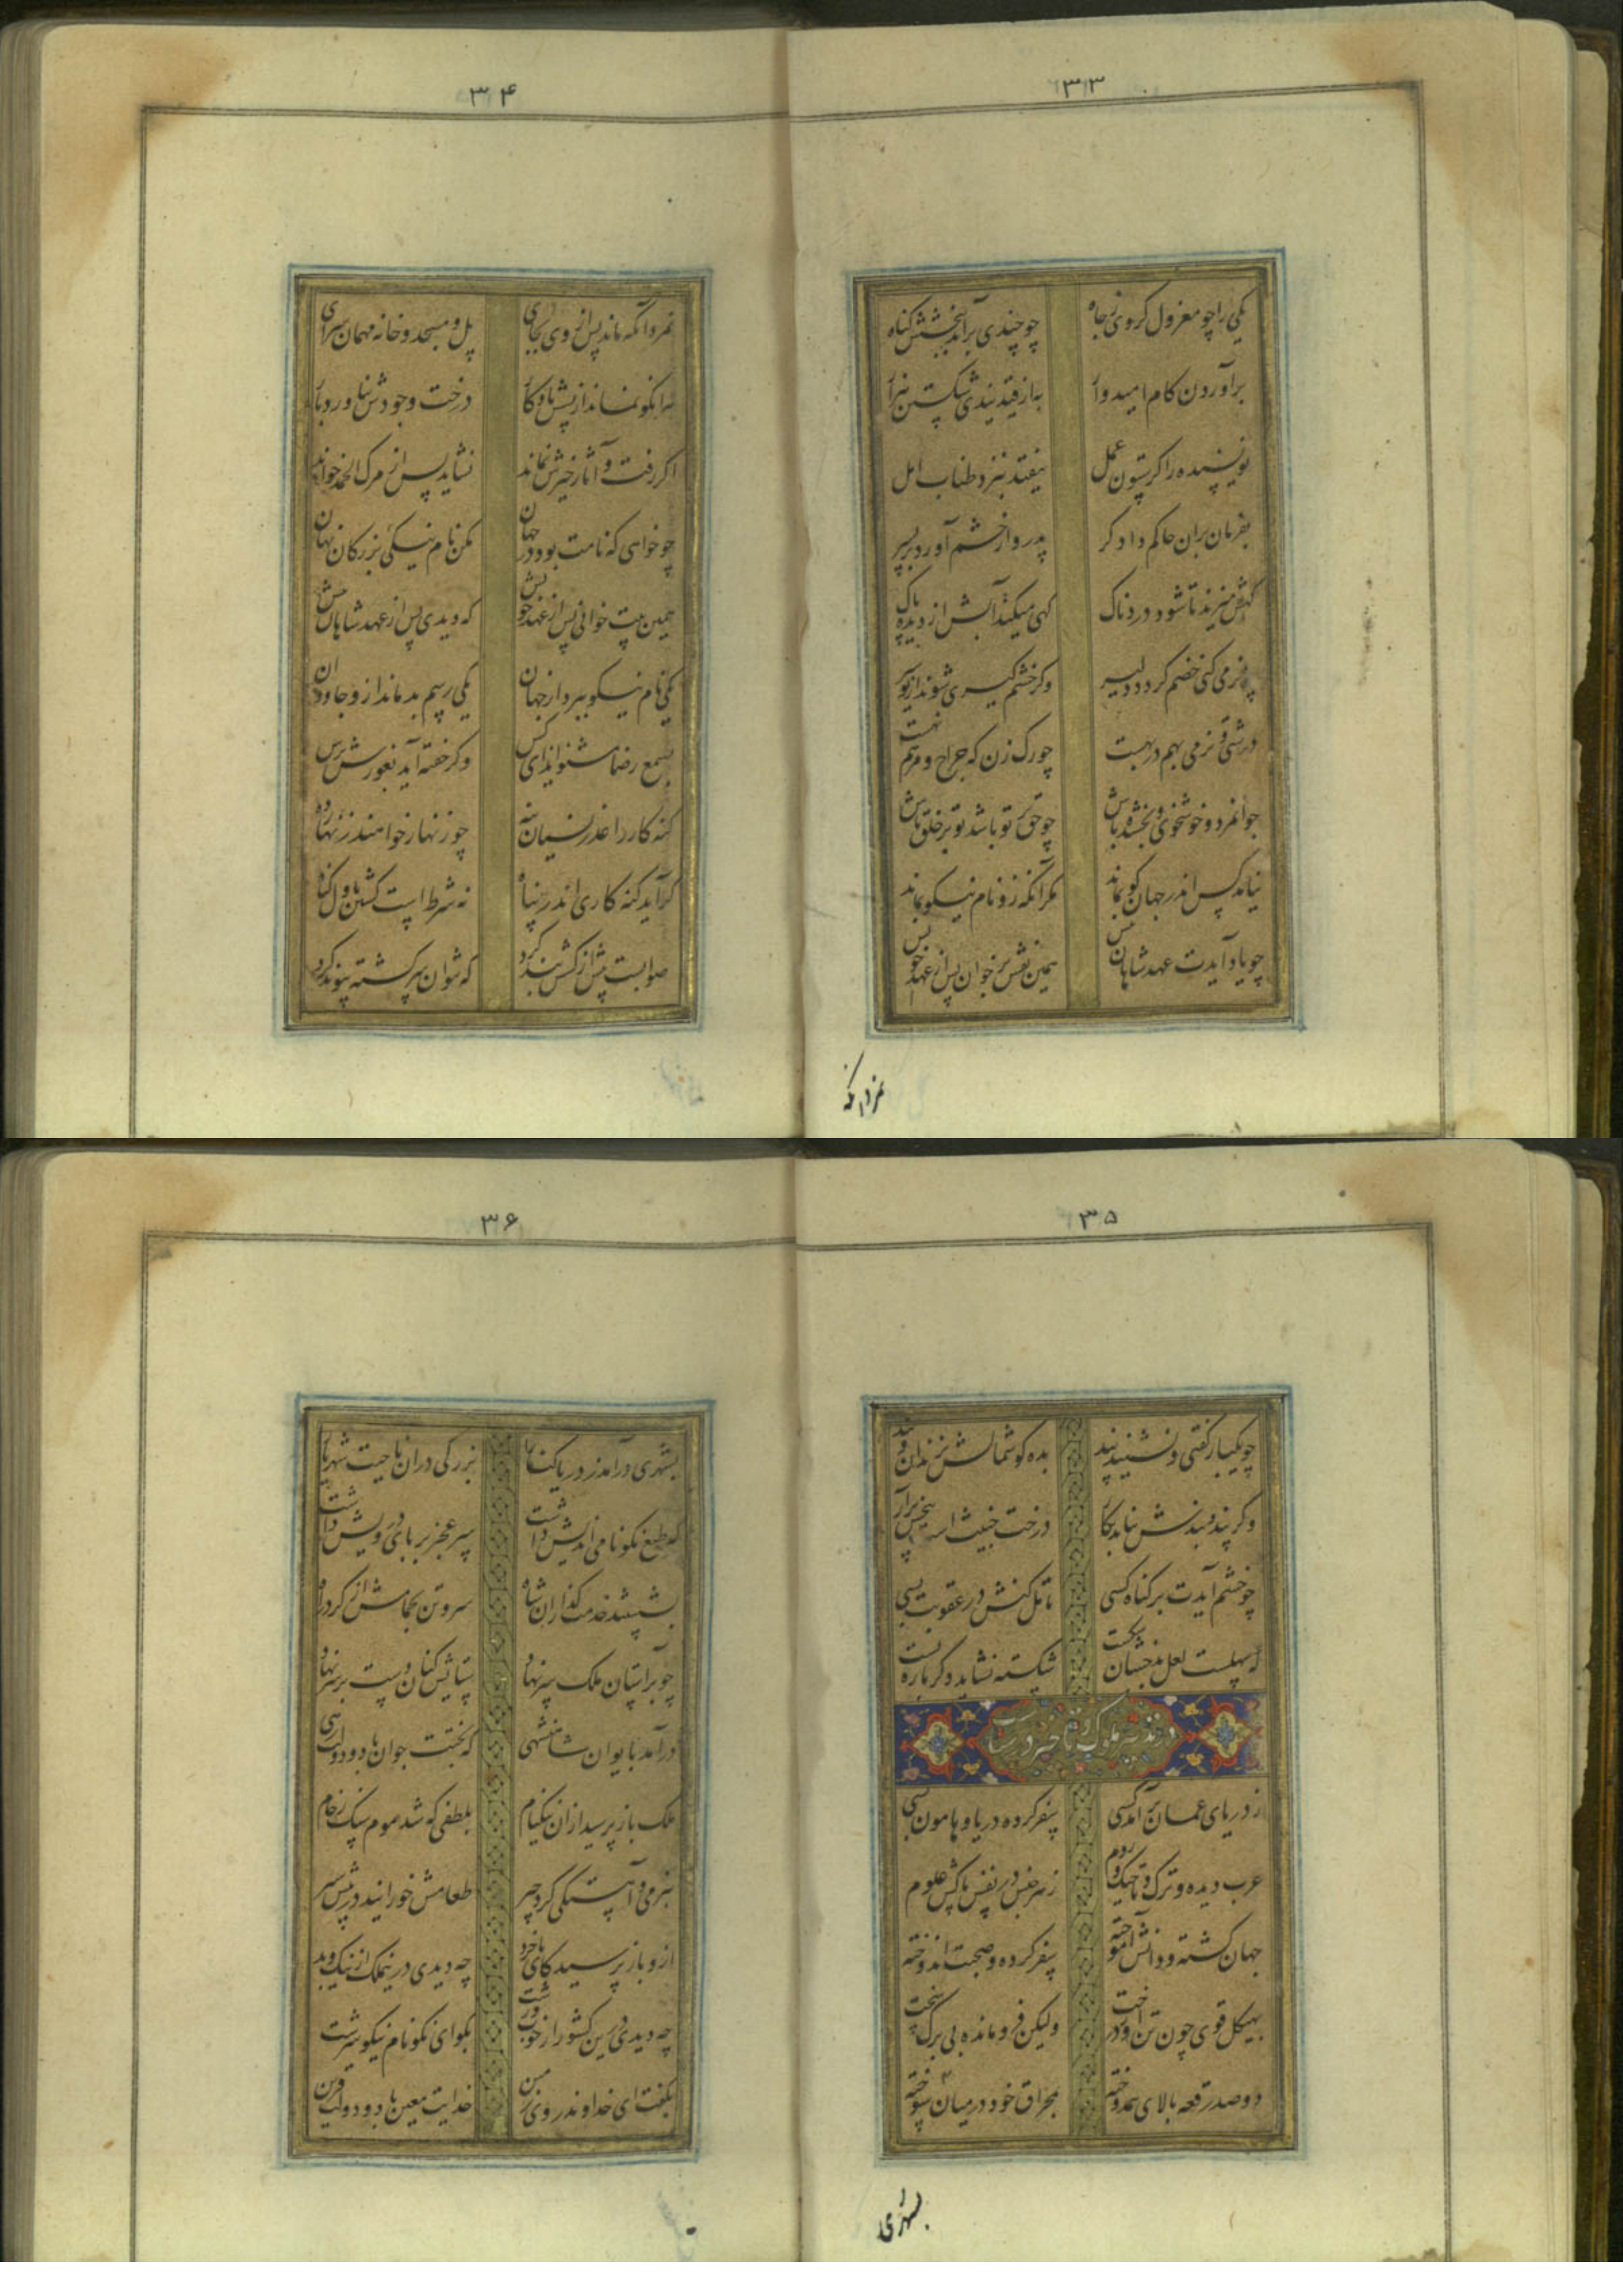 ۳۳
یکی را چو معزول کردی ز جاه چو چندی برآید ببخشش گناه
برآوردن کام امیدوار به از قید بندی شکستن هزار
نویسنده را گر ستون عمل بیفتد نبرد طناب امل
بفرمان بران حاکم دادگر پدروار خشم آورد بر پسر
گهش میزند تا شود دردناک گهی میکند آبش از دیده پاک
چو نرمی کنی خصم گردد دلیر وگر خشم گیری شوند از تو سیر
درشتی و نرمی بهم در بهست چو رگ زن که جراح و مرهم نهست
جوانمرد و خوشخوی و بخشنده باش چو حق بر تو باشد تو بر خلق پاش
نیامد کس اندر جهان کو بماند مگر آنکه زو نام نیکو بماند
چو یاد آیدت عهد شاهان پیش همین نقش بر خوان پس از عهد خویش
نمرد آنکه
۳۴
نمرد آنکه ماند پس از وی بجای پل و مسجد و خانه و مهمان سرای
هر آنکو نماند از پسش یادگار درخت وجودش نیاورد بار
اگر رفت و آثار خیرش نماند نشاید پس از مرگ الحمد خواند
چو خواهی که نامت بود در جهان مکن نام نیکی بزرگان نهان
همین بیت خوانی پس از عهد خویش که دیدی پس از عهد شاهان پیش
یکی نام نیکو ببرد از جهان یکی رسم بد ماند ازو جاودان
بسمع رضا مشنو ایذای کس وگر گفته آید بغورش برس
گنه کار را عذر نسیان بنه چو زنهار خواهند زنهار ده
گر آید گنه کاری اندر پناه نه شرط است کشتن باول گناه
صوابست پیش از کشش بند کرد که نتوان سر کشته پیوند کرد
۳۵
چو یکبار گفتی و نشنید پند بده گوشمالش بزندان و بند
وگر پند و بندش نیاید بکار درخت خبیث است بیخش برآر
چو خشم آیدت بر گناه کسی تامل کنش در عقوبت بسی
که سهلست لعل بدخشان شکست شکسته نشاید دگر باره بست
در تدبیر ملوک و تاخیر در سیاست
ز دریای عمان برآمد کسی سفر کرده دریا و هامون بسی
عرب دیده و ترک و تاجیک و روم ز هر جنس در نفس پاکش علوم
جهان گشته و دانش آموخته سفر کرده و صحبت اندوخته
بهیکل قوی چون تن‌ور درخت ولیکن فرومانده بی برگ سخت
دو صد رقعه بالای هم دوخته بحراق خود در میان سوخته
بشهری
۳۶
بشهری درآمد ز دریا کنار بزرگی در آن ناحیت شهریار
که طبع نکونامی اندیش داشت سر عجز بر پای درویش داشت
بشستند خدمت گذاران شاه سر و تن بحمامش از گرد راه
چو بر آستان ملک سر نهاد ستایش کنان دست بر بر نهاد
درآمد بایوان شاهنشهی که بختت جوان باد و دولت رهی
ملک باز پرسید ازان نیکنام بلطفی که شد موم سنگ رخام
بنرمی و آهستگی کرد چهر طعامش خورانید در پیش سر
ازو باز پرسید کای با خرد چه دیدی درین ملک از نیک و بد
چه دیدی درین کشور از خوب و زشت بگو ای نکونام نیکو سرشت
بگفت ای خداوند روی زمین خدایت معین باد و دولت قرین